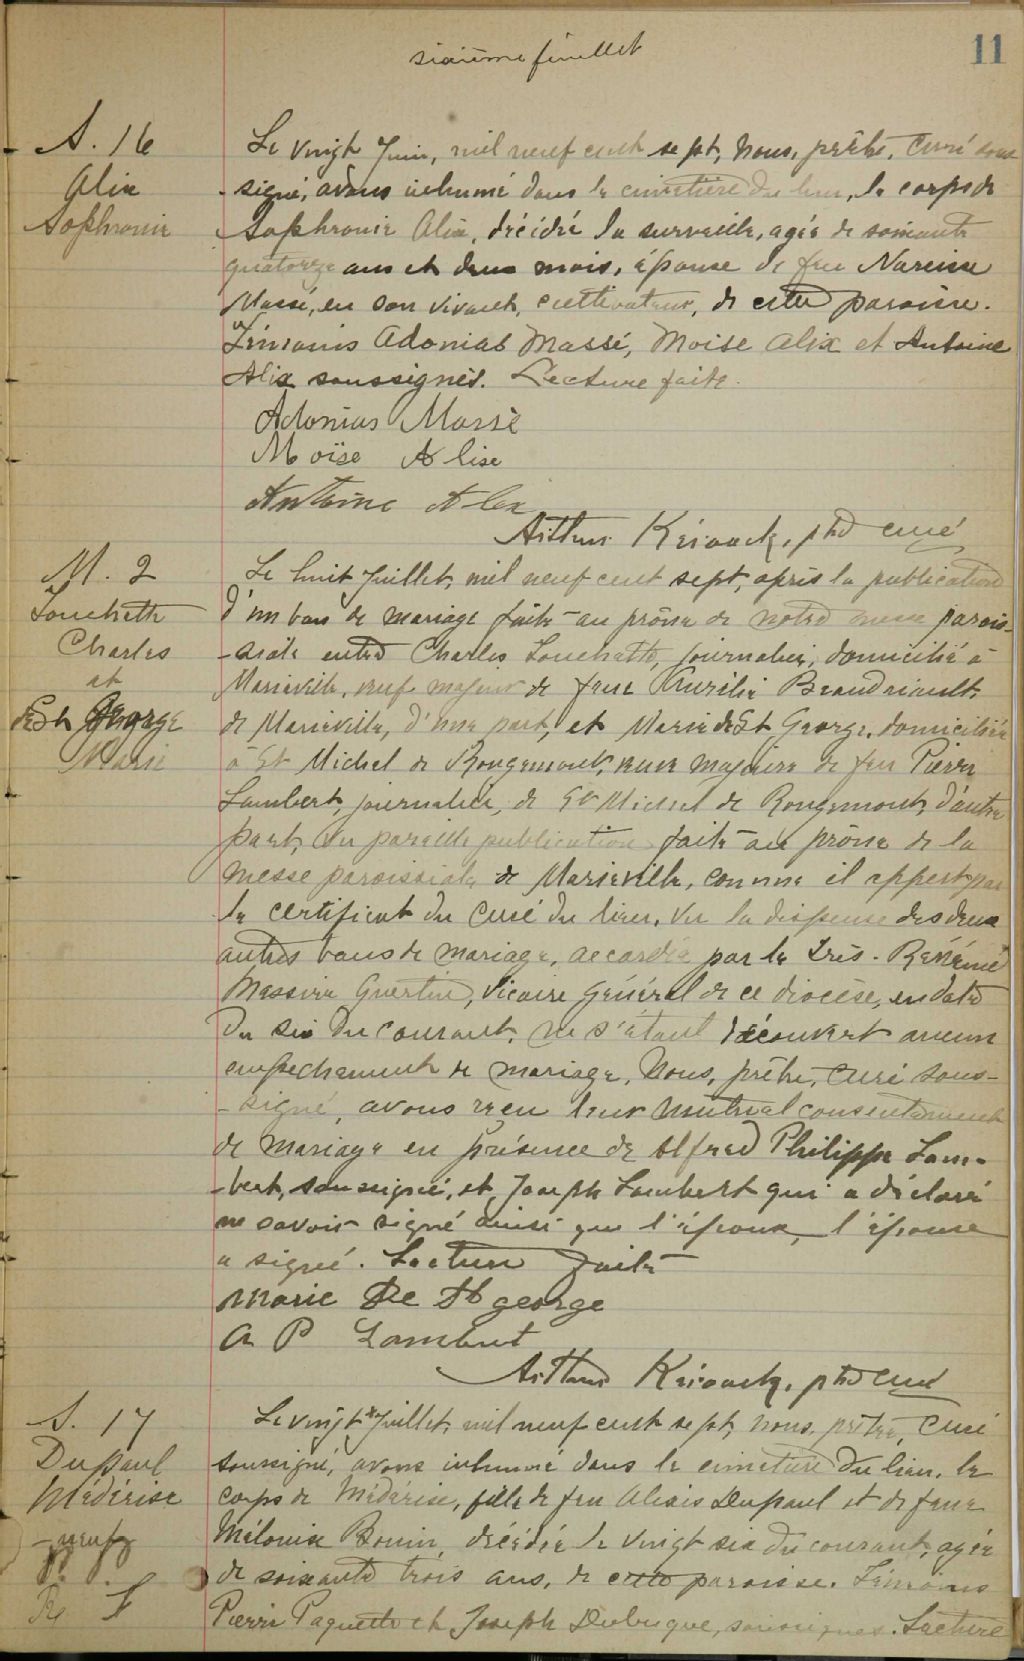 sixième feuillet
11
S. 16
Alix
Sophronie
Le vingt Juin, mil neuf cent sept, Nous, prêtre, Curé sous
signé, avons inhumé dans le cimetière du lieu, le corps de
Sophronie Alix, décédée la surveille, agée de soixante
quatorze ans et deux mois, épouse de feu Narcisse
Massé, en son vivant, cultivateur, de cette paroisse.
Témoins Adonias Massé, Moise Alix et Antoine
Alix soussignés. Lecture faite.
Adonias Massé
Moïse Alixe
Antoine Alex
Arthur ptre curé
M. 2
Louchette
Charles
et
de St George
Marie
Le huit Juillet, mil neuf cent sept, après la publication
d'un ban de mariage faite au prône de notre messe parois-
-siale entre Charles Louchette, journalier, domicilié à
Marieville, veuf majeur de feue Aurélie Beaudriault
de Marieville, d'une part, et Marie de St George, domiciliée
à St Michel de Rougemont, veuve majeure de feu Pierre
Lambert, journalier, de St Michel de Rougemont, d'autre
part, Vu pareille publication faite au prône de la
messe paroissiale de Marieville, comme il appert par
le certificat du Curé du lieu, Vu la dispense des deux
autres bans de mariage, accordée par le Très-Révérend
Messire Guertin, Vicaire Général de ce diocèse, en date
du six du courant, ne s'étant découvert aucun
empechement de mariage, Nous, prêtre, Curé sous-
-signé, avons reçu leur mutual consentement
de mariage en présence de Alfred Philippe Lam-
-bert, soussigné, et, Joseph Lambert qui a déclaré
ne savoir signé ainsi que l'époux, l'épouse
a signé. Lecture faite
Marie De St george
A P Lambert
Arthur ptre curé
S. 17
Dupaul
Médérise
Le vingt Juillet, mil neuf cent sept, Nous, prêtre, Curé
soussigné, avons inhumé dans le cimetière du lieu, le
corps de Médérise, fille de feu Alexis Dupaul et de feue
Mélonix Bouin, décédée le vingt six du courant, agée
de soixante trois ans, de cette paroisse. Témoins
Pierre Paquette et Joseph Dubuque, soussignés. Lecture
-neuf